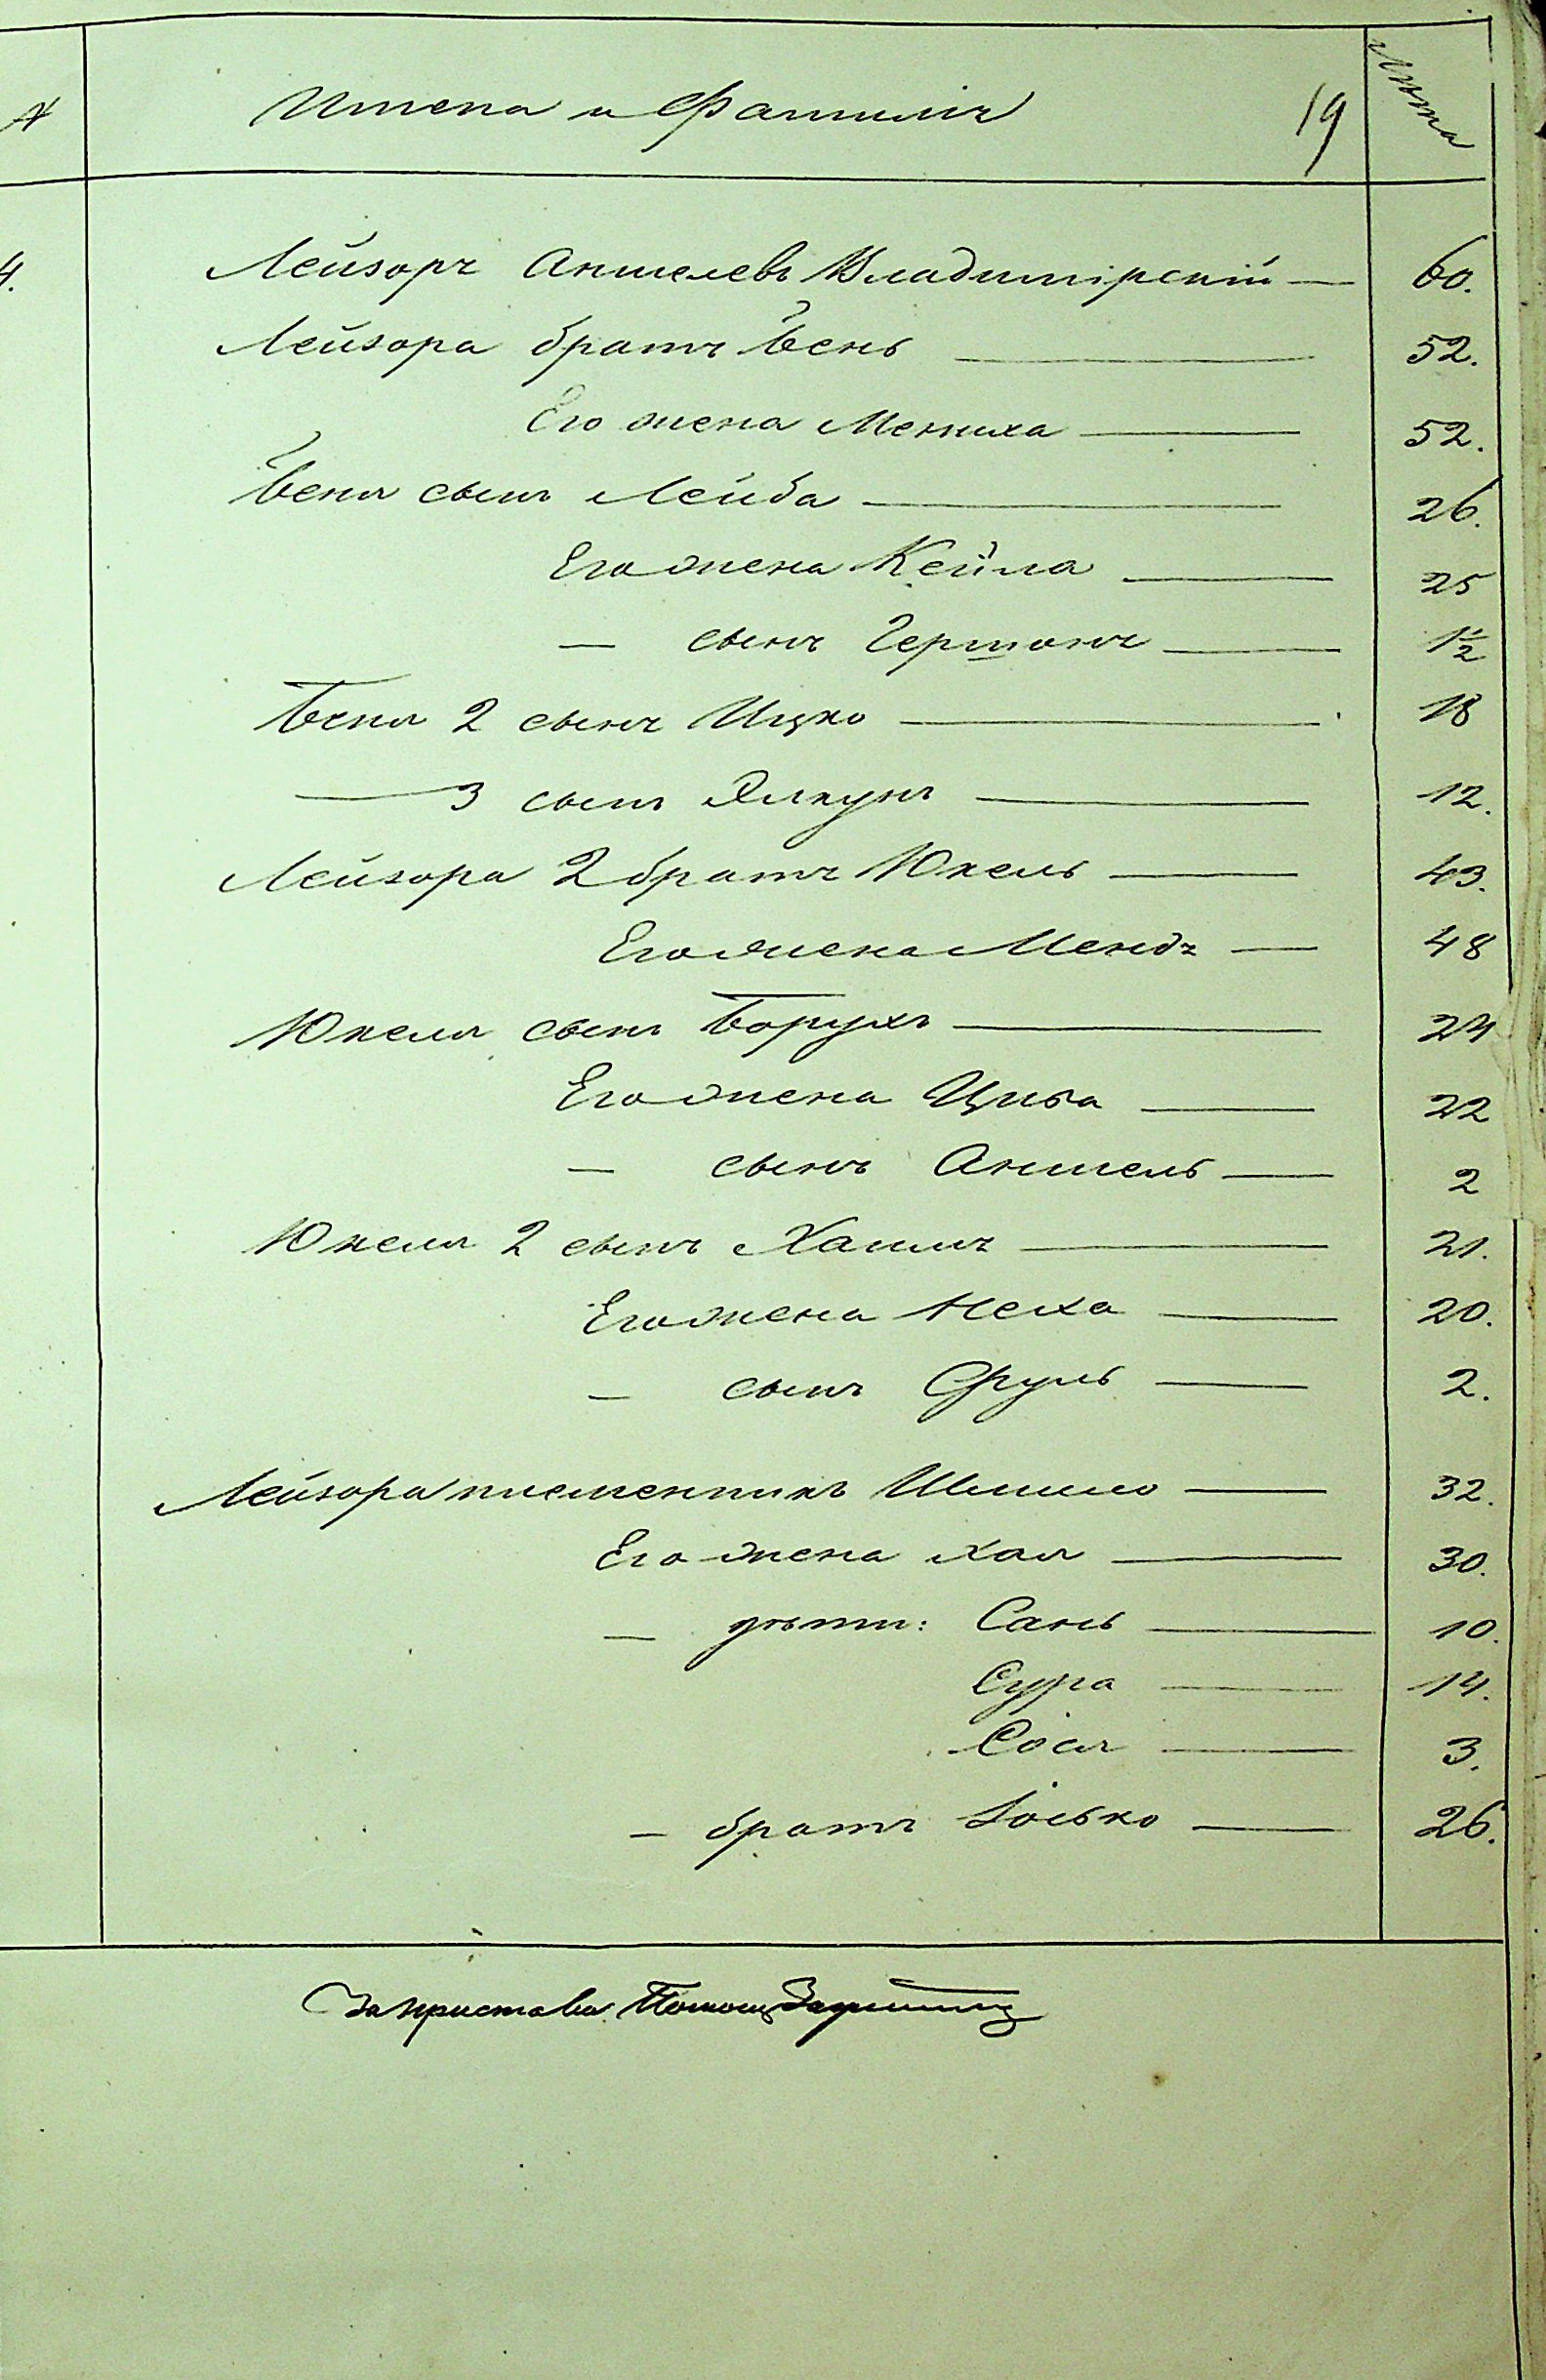 № Имена и Фамилiи 19 Лѣта
4. Лейзоръ Аншелевъ Владимiрскiй — 60.
Лейзора братъ Бень — 52.
Его жена Менниха — 52.
Беня сынъ Лейба — 26.
Его жена Кейла — 25
— сынъ Гершонъ — 1½
Беня 2 сынъ Ицко — 18
— 3 сынъ Янкунъ — 12.
Лейзора 2 братъ Юкель — 43.
Его жена Мендя — 48
Юкеля сынъ Борухъ — 24
Его жена Цива — 22
— сынъ Аншель — 2
Юкеля 2 сынъ Хаимъ — 21.
Его жена Неха — 20.
— сынъ Сруль — 2.
Лейзора племенникъ Шлимо — 32.
Его жена Хая — 30.
— дѣти: Сань — 10.
Сура — 14.
Сося — 3.
— братъ Iосько — 26.
За пристава Помощ